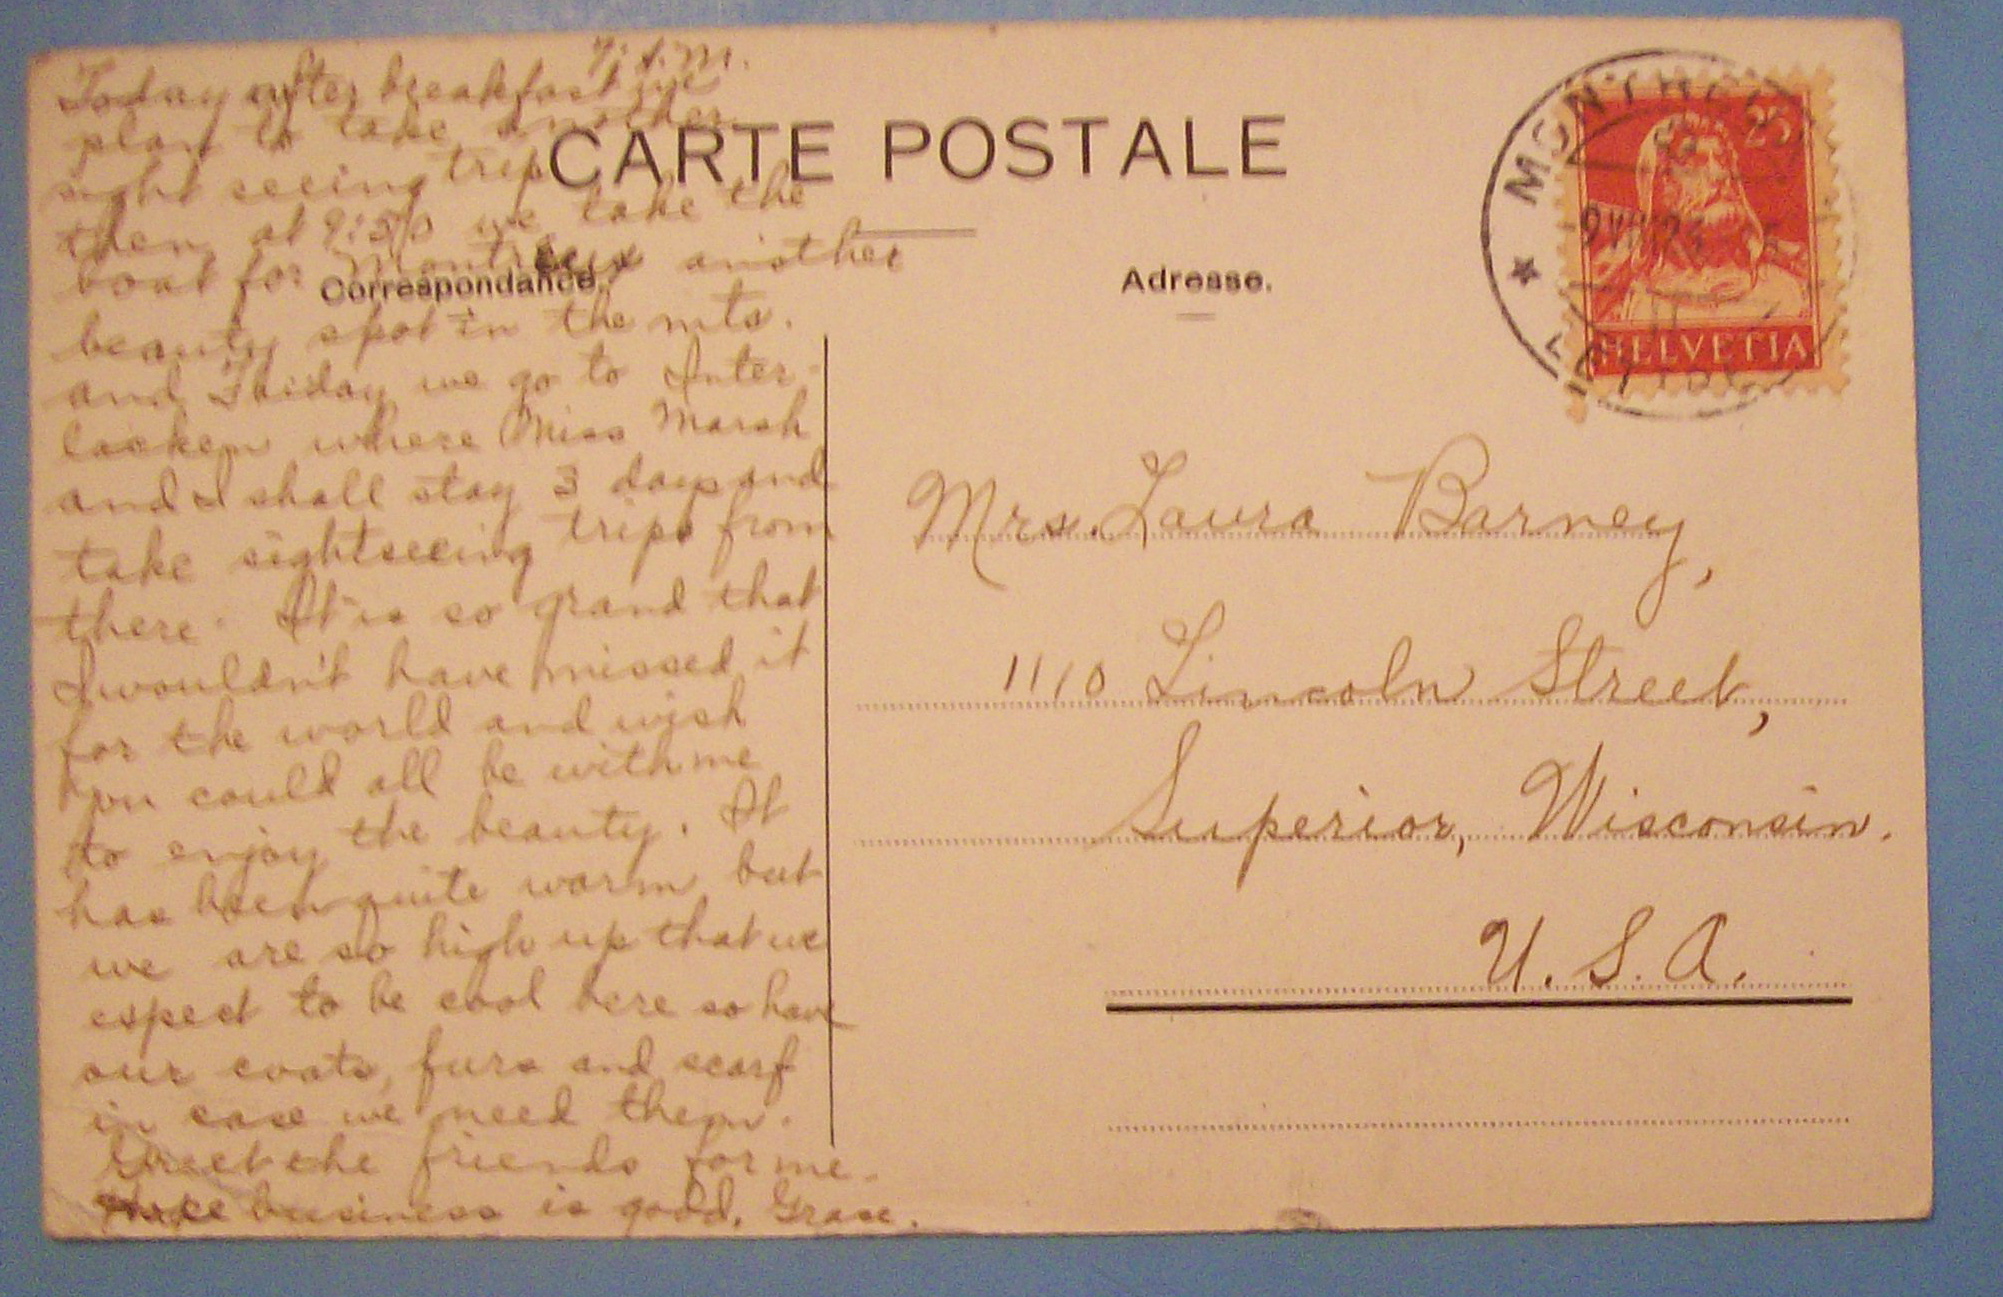 7 A.M.
Today after breakfast we
plan to take another
sight seeing trip
then at 9:50 we take the
boat for Montreux another
beauty spot in the mts.
and Friday we go to Inter-
lacken where Miss Marsh
and I shall stay 3 days and
take sightseeing trips from
there. It is so grand that
I wouldn't have missed it
for the world and wish
you could all be with me
to enjoy the beauty. It
has been quite warm but
we are so high up that we
expect to be cool here so have
our coats, furs and scarf
in case we need them.
Greet the friends for me.
business is good. Grace.
CARTE POSTALE
Correspondance.
Adresse.
Mrs. Laura Barney,
1110 Lincoln Street,
Superior, Wisconsin.
U. S. A.
25
HELVETIA